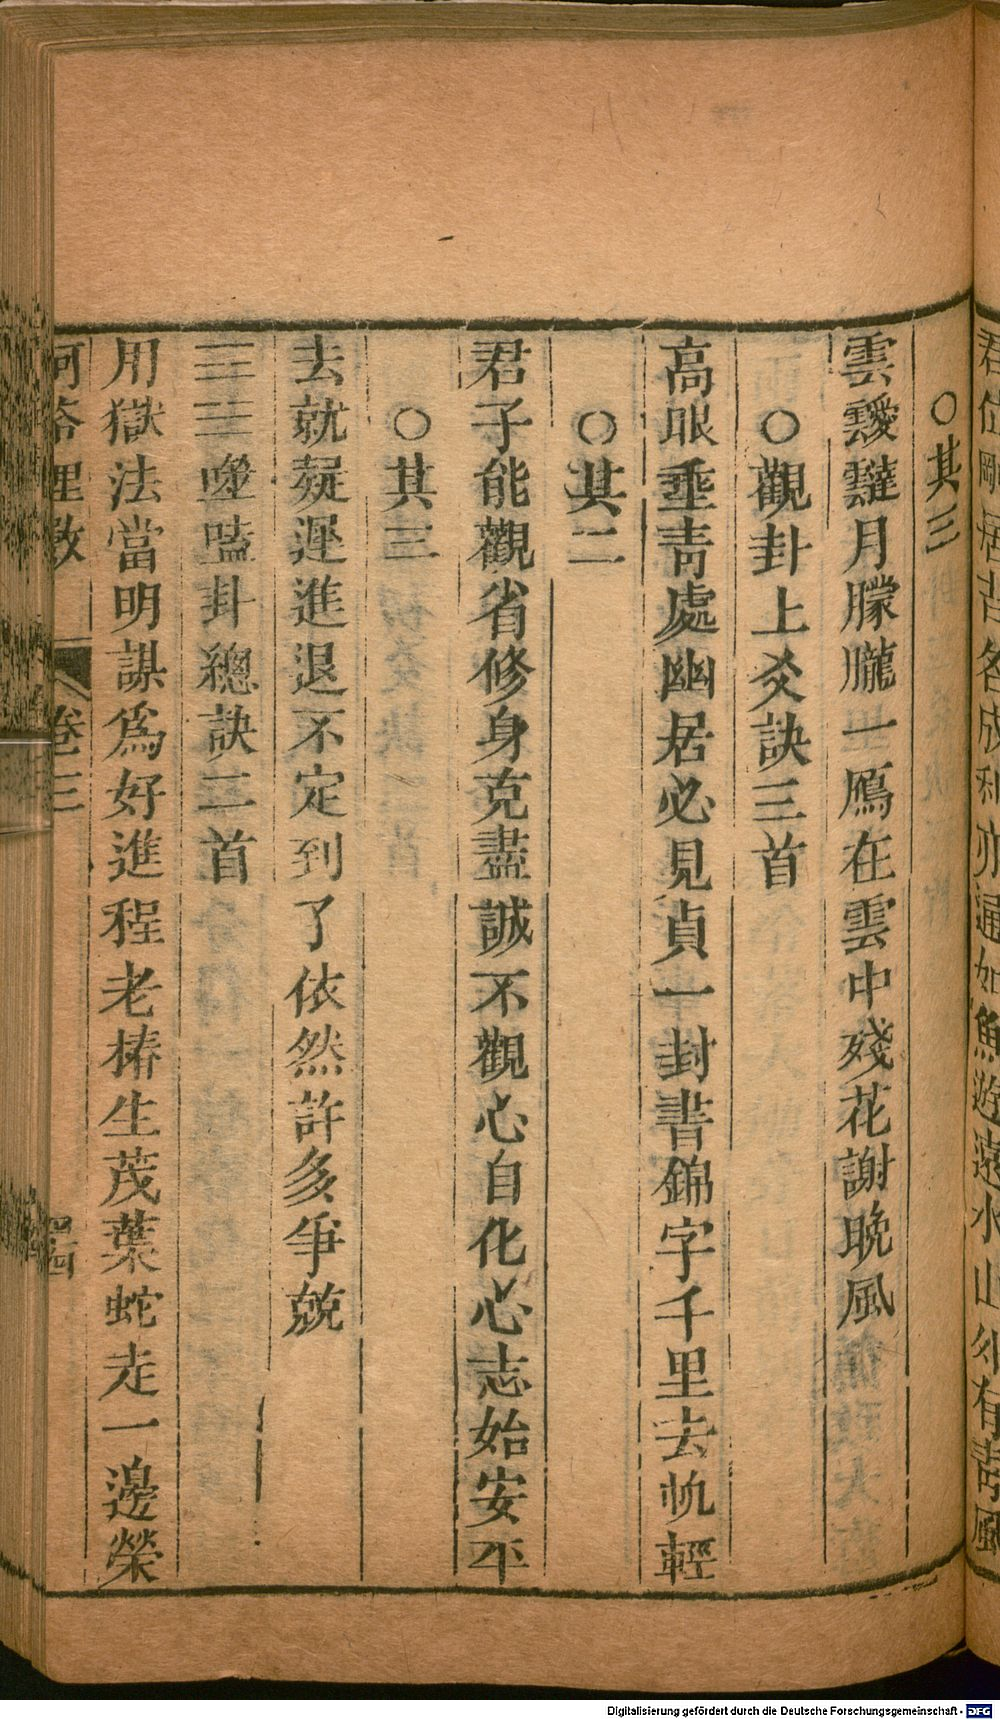 君位剛居吉各成利亦通如魚遊遠水山外有青風
○其三
雲靉靆月朦朧一鴈在雲中殘花謝晚風
○觀卦上爻訣三首
高眼垂青處幽居必見貞一封書錦字千里去帆輕
○其二
君子能觀省修身克盡誠不觀心自化心志始安平
○其三
去就疑遲進退不定到了依然許多爭兢
噬嗑卦總訣二首
用獄法當明謀爲好進程老椿生茂葉蛇走一邊榮
河洛理數 卷三
Digitalisierung gefördert durch die Deutsche Forschungsgemeinschaft - DFG